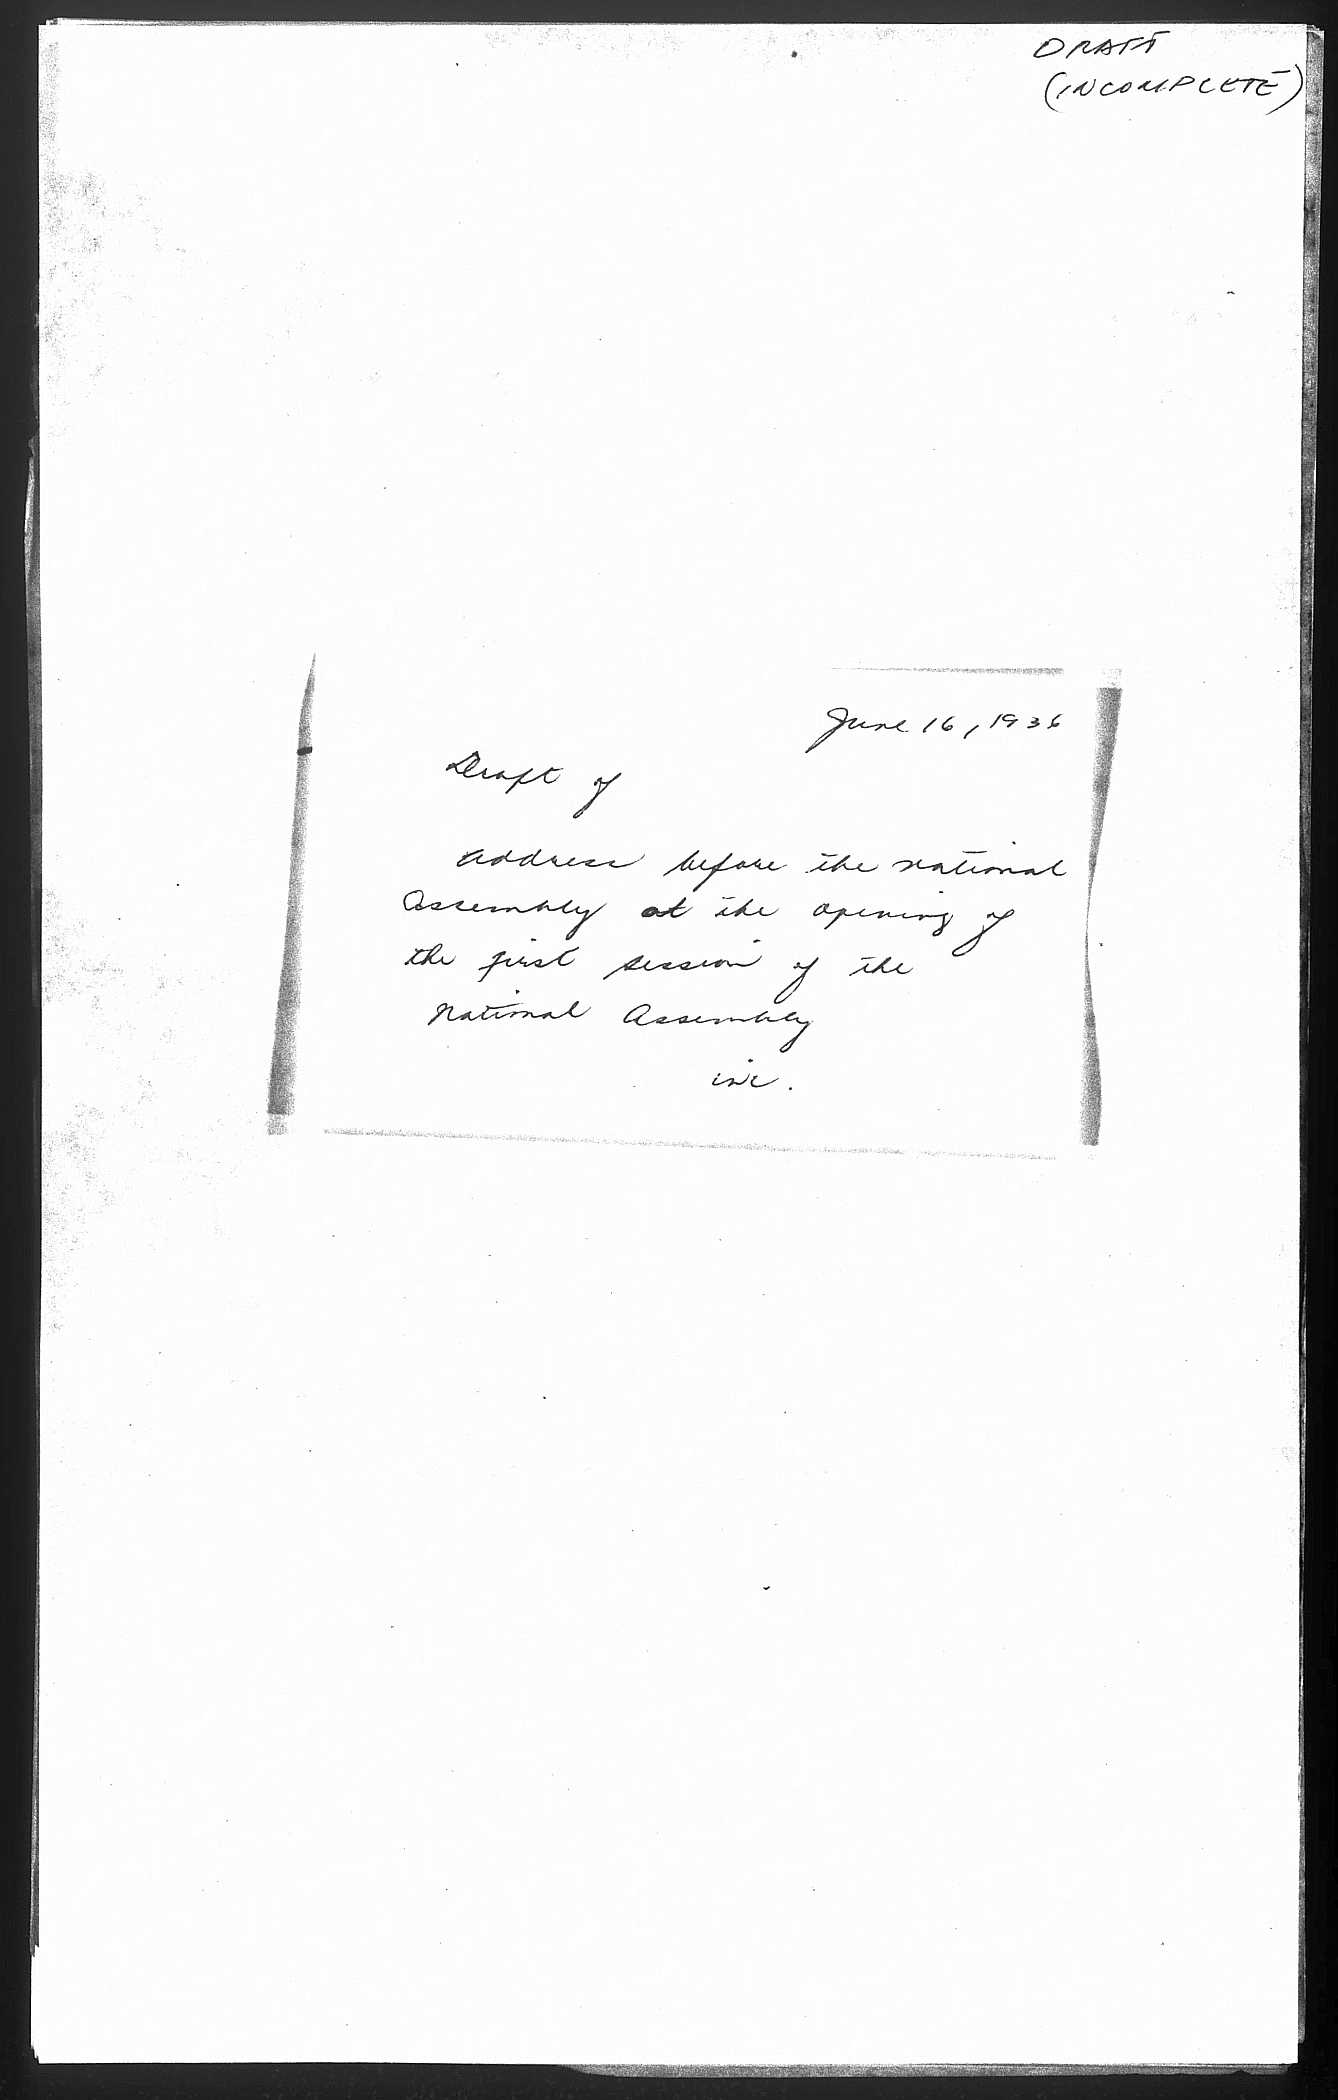 DRAFT
(INCOMPLETE)
June 16, 1936
Draft of
address before the national
Assembly at the opening of
the first session of the
National Assembly
inc.